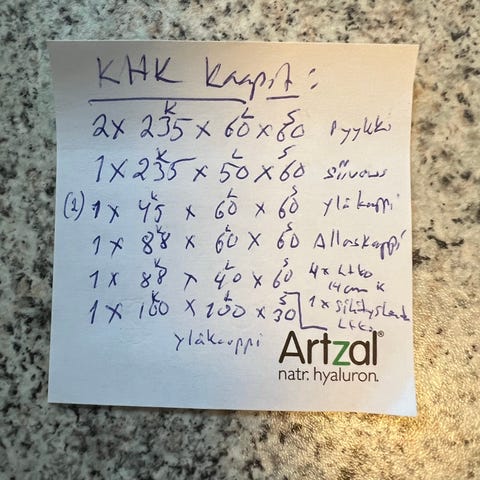 KHK Kaapit:
2x 235 x 60 x 60 pyykki
K L S
1x 235 x 50 x 60 siivous
K L S
(1) 1x 45 x 60 x 60 yläkaappi
K L S
1x 88 x 60 x 60 Allaskaappi
K L S
1x 88 x 40 x 60 4x Ltko
14cm K
K L S
1x 100 x 100 x 30 1x Silityslauta
Ltko
yläkaappi
Artzal®
natr. hyaluron.